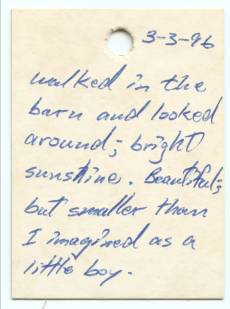 3-3-96
walked in the
barn and looked
around; bright
sunshine. Beautiful;
but smaller than
I imagined as a
little boy.